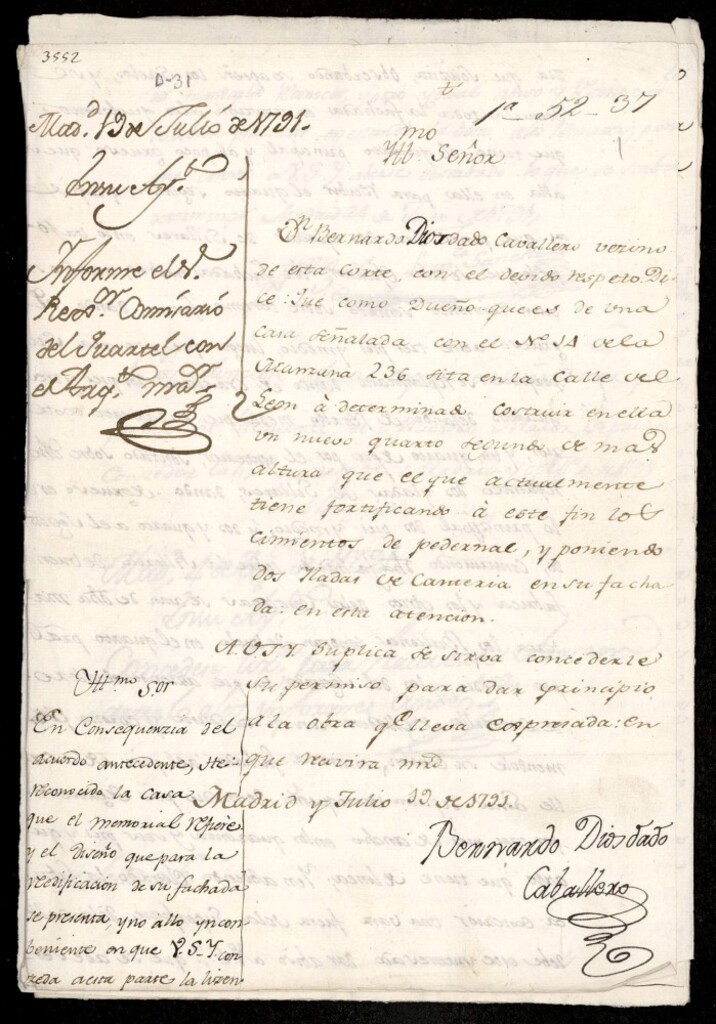 3552
D-31
1ª 52-37
1
Mad.d 19 de Julio de 1791.
En su Ay.to
Informe el S.r
Rexo.or Comisario
del Quartel con
el Arq.to m.or
Yll.mo Señor
D.n Bernardo Diosdado Cavallero vezino
de esta Corte, con el devido respeto Di-
ce: Que como Dueño que es de una
casa señalada con el Nº 14 de la
Manzana 236 sita en la Calle del
Leon à determinado costruir en ella
un nuevo quarto segundo de mas
altura que el que actualmente
tiene fortificando à este fin los
Cimientos de pedernal, y poniendo
dos Iladas de Canteria en su facha
da: en esta atencion.
A. V.S.Y. Suplica se sirva concederle
su permiso para dar principio
a la obra q.e lleva espresada: en
que recivira mrd
Madrid y Julio 19. de 1791.
Bernardo Diosdado
Caballero
Yll.mo Sor
En Consequenzia del
acuerdo antecedente, he
reconocido la casa
que el memorial refiere
y el diseño que para la
redificacion de su fachada
se presenta, y no allo yncon
beniente en que V.S.Y. con
zeda a esta parte la lizen